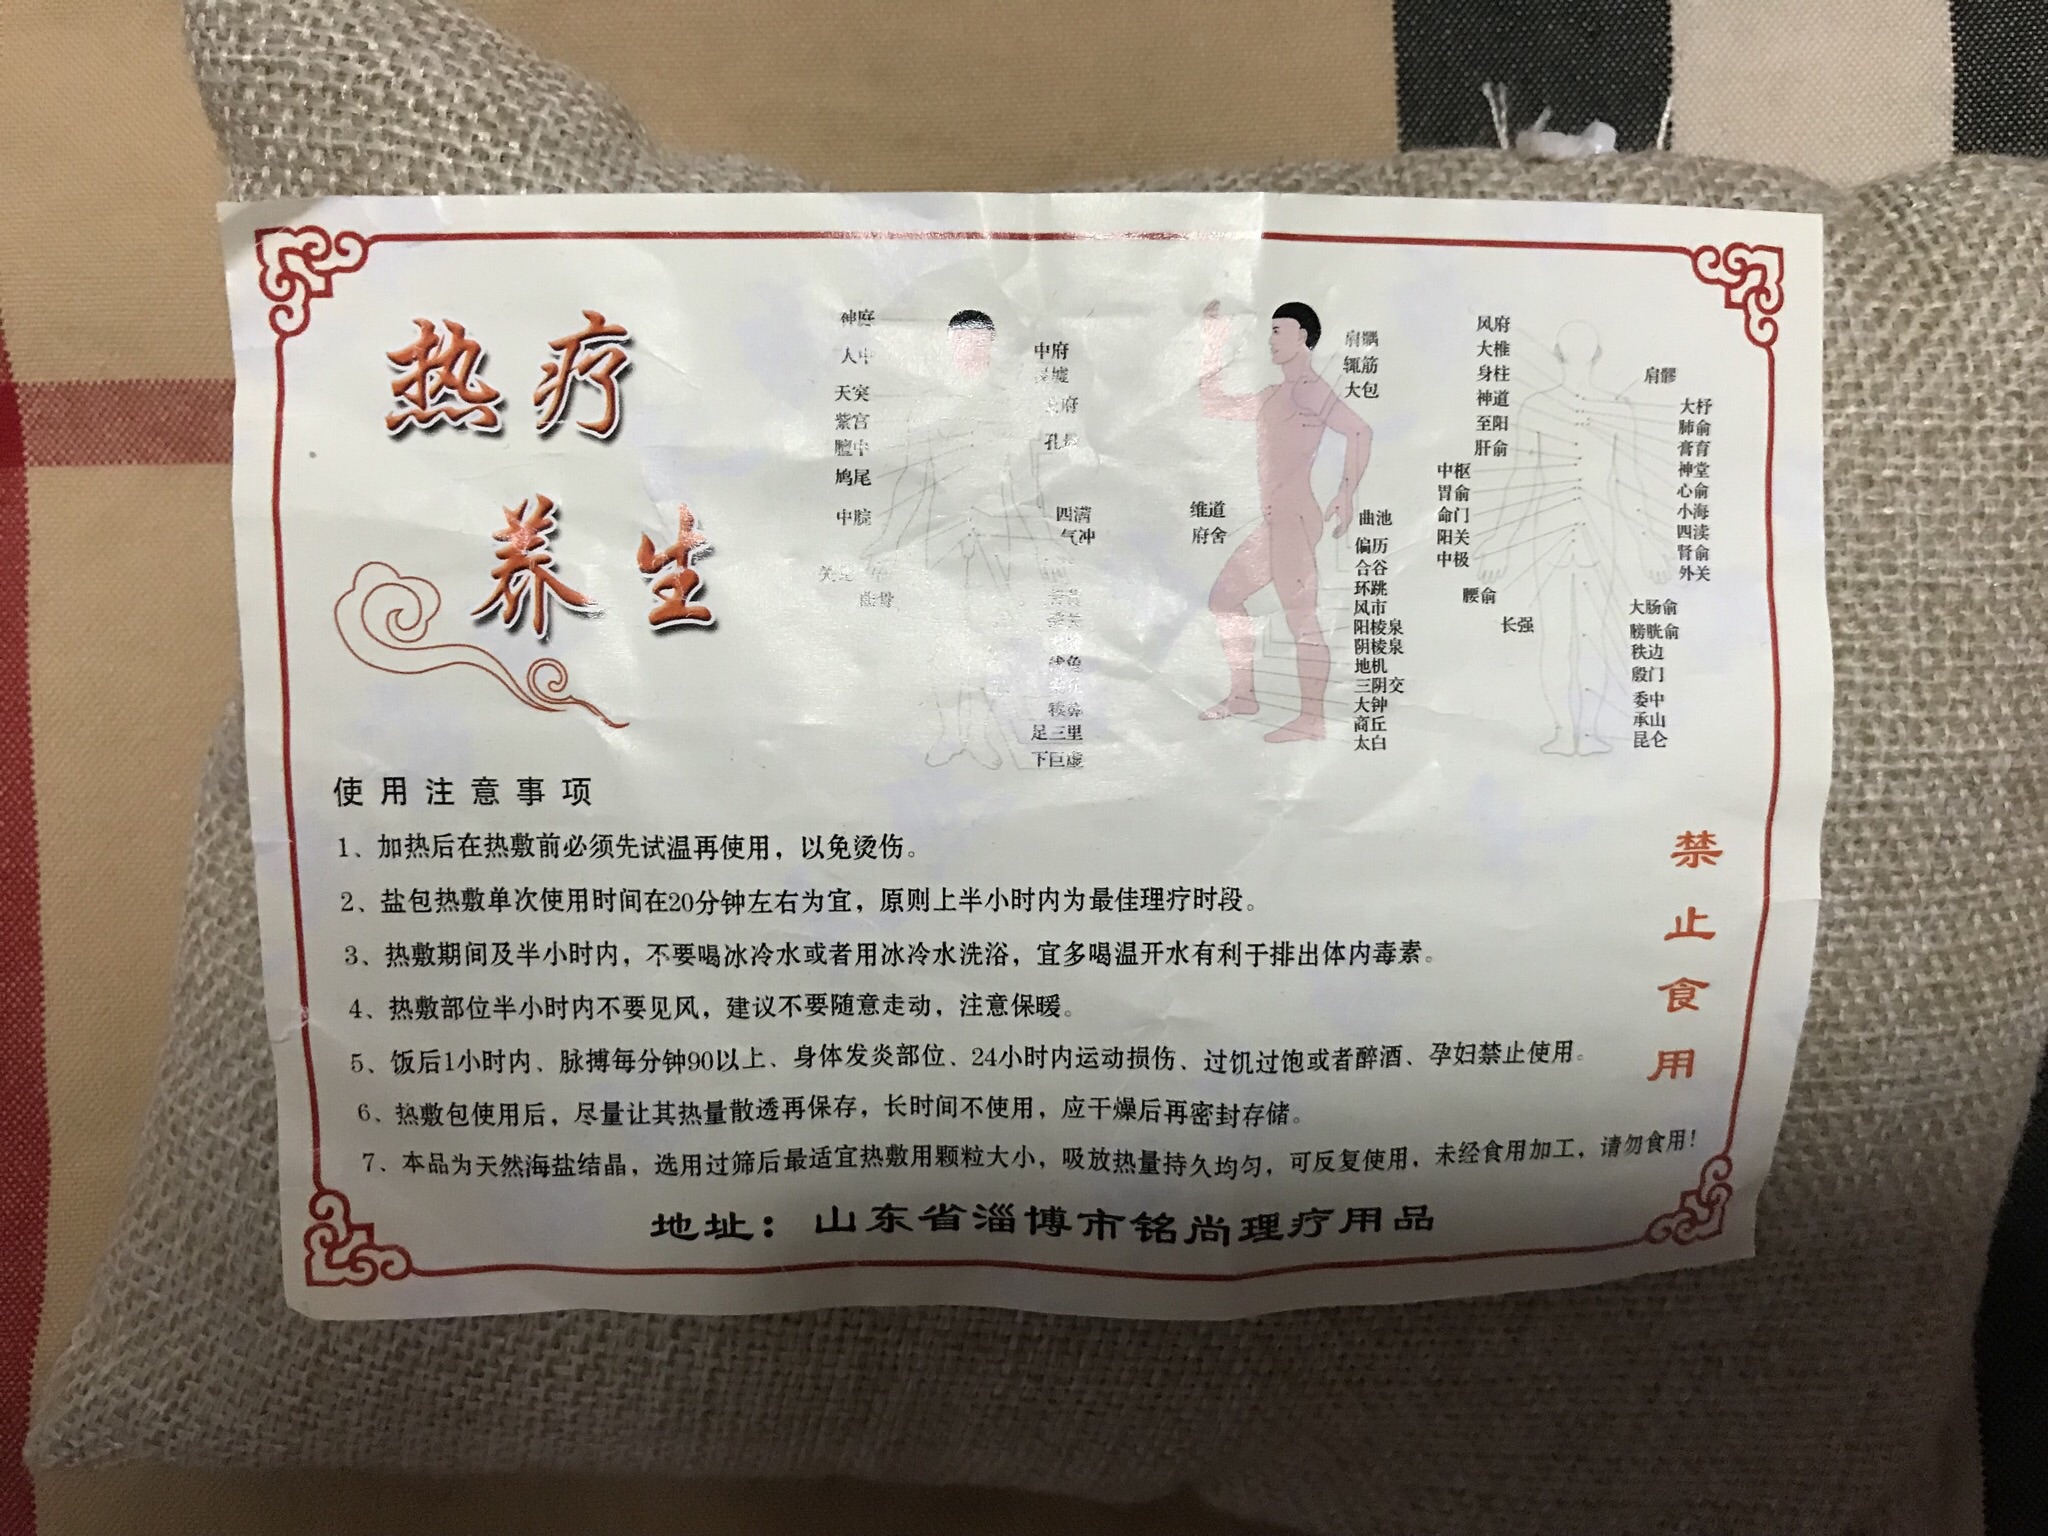 热疗
养生
神府
人中
天突
紫宫
膻中
鸠尾
中脘
曲骨
中府
四满
气冲
足三里
下巨虚
肩髃
辄筋
大包
维道
府舍
曲池
偏历
合谷
环跳
风市
阳棱泉
阴棱泉
地机
三阴交
大钟
商丘
太白
风府
大椎
身柱
神道
至阳
肝俞
中枢
胃俞
命门
阳关
中极
腰俞
长强
肩髎
大杼
肺俞
膏育
神堂
心俞
小海
四渎
肾俞
外关
大肠俞
膀胱俞
秩边
殷门
委中
承山
昆仑
使用注意事项
1、加热后在热敷前必须先试温再使用，以免烫伤。
2、盐包热敷单次使用时间在20分钟左右为宜，原则上半小时内为最佳理疗时段。
3、热敷期间及半小时内，不要喝冰冷水或者用冰冷水洗浴，宜多喝温开水有利于排出体内毒素。
4、热敷部位半小时内不要见风，建议不要随意走动，注意保暖。
5、饭后1小时内、脉搏每分钟90以上、身体发炎部位、24小时内运动损伤、过饥过饱或者醉酒、孕妇禁止使用。
6、热敷包使用后，尽量让其热量散透再保存，长时间不使用，应干燥后再密封存储。
7、本品为天然海盐结晶，选用过筛后最适宜热敷用颗粒大小，吸放热量持久均匀，可反复使用，未经食用加工，请勿食用！
禁止食用
地址：山东省淄博市铭尚理疗用品